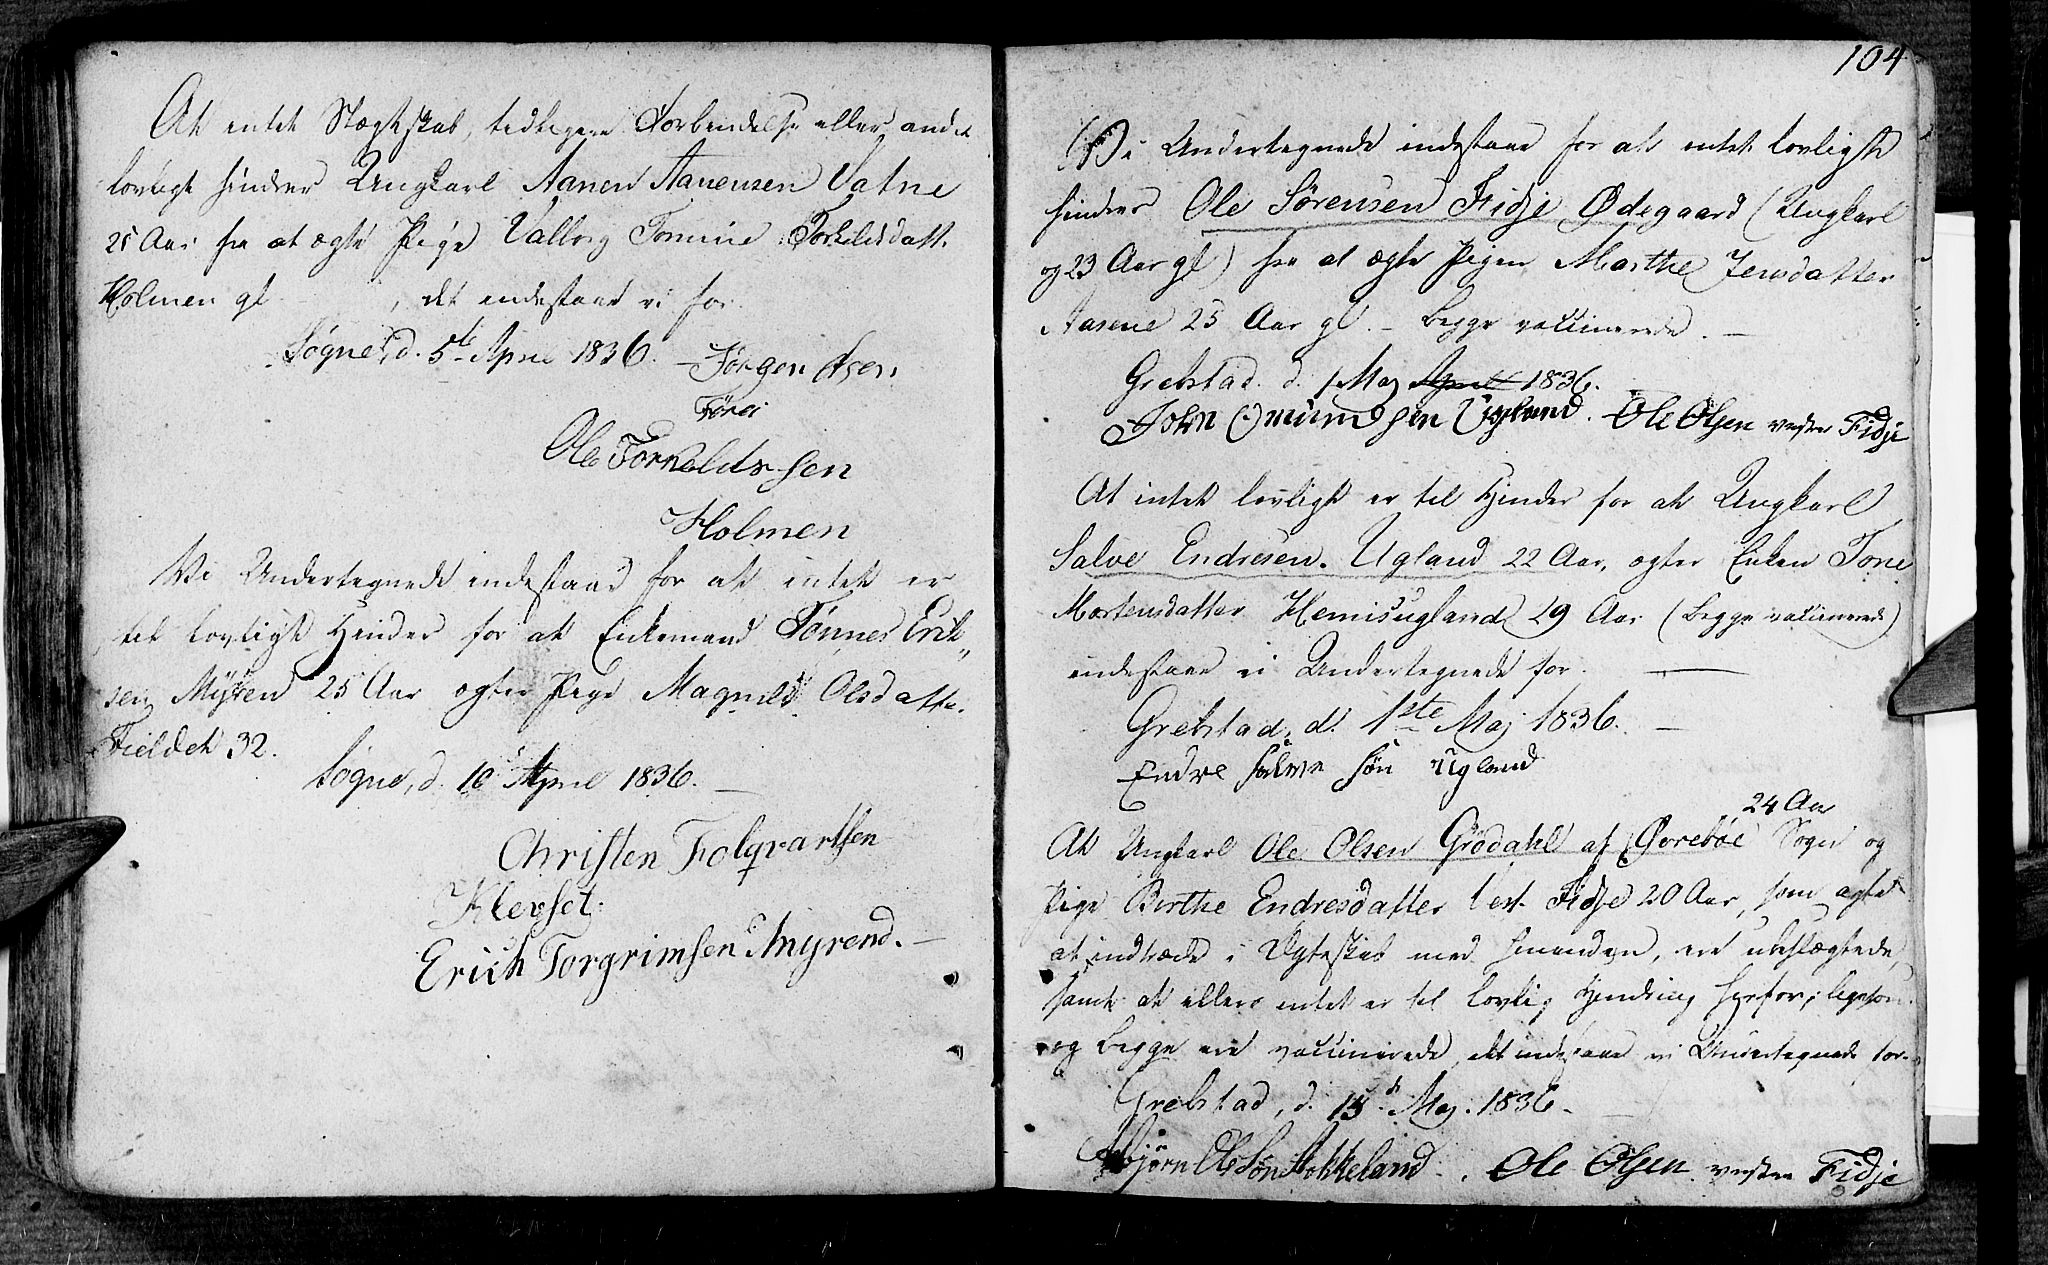 At intet Slægtskab, tidligere Forbindelse eller andet
lovligt hindrer Ungkarl Aanen Aanensen Vatne
25 Aar fra at ægte Pige Valborg Tomine Torkildsdatt.
Holmen gl , det indestaae vi for.
Søgne, d. 5te April 1836. Jørgen Olsen
Ole Torkeldssen
Holmen
Vi Undertegnede indestaae for at intet er
til lovligt Hinder for at Enkemand Tønnes Erik-
sen Myren 25 Aar ægter Pige Magnild Olsdatter
Fieldet 32.
Søgne, d. 10 April 1836.
Christen Folqvartsen
Klevset
Erich Torgrimsen Myrend.
104
Vi Undertegnede indestaae for at intet lovligt
hindrer Ole Sørensen Fidje Ødegaard (Ungkarl
og 23 Aar gl) fra at ægte Pigen Marthe Jensdatter
Aasene 25 Aar gl. - begge vaccinerede. -
Grebstad d. 1 Maj April 1836.
John Omundsen Ugland. Ole Olsen vestre Fidje
At intet lovligt er til Hinder for at Ungkarl
Salve Endresen Ugland 22 Aar, ægter Enken Tone
Mortensdatter Hemisugland 29 Aar (begge vaccinerede)
indestaae vi Undertegnede for.
Grebstad, d. 1ste Maj 1836. -
Endre Salve søn Ugland
24 Aar
At Ungkarl Ole Olsen Grødahl af Øvrebøe Sogn og
Pige Berthe Endresdatter Vest. Fidje 20 Aar, som agte
at indtræde i Ægteskab med hinanden, ere ubeslægtede,
samt at ellers intet er til lovlig Hindring herfor, ligesom
og begge ere vaccinerede, det indestaae vi Undertegnede for.
Grebstad, d. 15de Maj 1836.
Asbjørn Ole Søn Stokkeland. Ole Olsen vestre Fidje